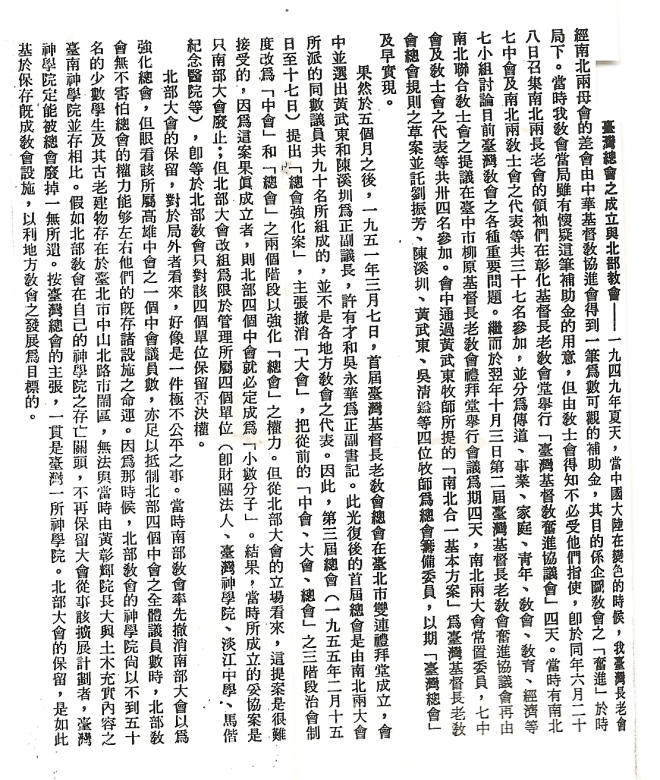 臺灣總會之成立與北部教會——一九四九年夏天，當中國大陸在變色的時候，我臺灣長老會
經南北兩母會的差會由中華基督教協進會得到一筆為數可觀的補助金，其目的係企圖教會之「奮進」於時
局下。當時我教會當局雖有懷疑這筆補助金的用意，但由教士會得知不必受他們指使，卽於同年六月二十
八日召集南北兩長老會的領袖們在彰化基督長老教會堂舉行「臺灣基督教奮進協議會」四天。當時有南北
七中會及南北兩教士會之代表等共三十七名參加，並分爲傳道、事業、家庭、青年、教會、教育、經濟等
七小組討論目前臺灣教會之各種重要問題。繼而於翌年十月三日第二屆臺灣基督長老教會奮進協議會再由
南北聯合教士會之提議在臺中市柳原基督長老教會禮拜堂舉行會議爲期四天，南北兩大會常置委員，七中
會及教士會之代表等共卅四名參加。會中通過黃武東牧師所提的「南北合一基本方案」爲臺灣基督長老教
會總會規則之草案並託劉振芳、陳溪圳、黃武東、吳清鎰等四位牧師爲總會籌備委員，以期「臺灣總會」
及早實現。
果然於五個月之後，一九五一年三月七日，首屆臺灣基督長老教會總會在臺北市雙連禮拜堂成立，會
中並選出黃武東和陳溪圳爲正副議長，許有才和吳永華爲正副書記。此光復後的首屆總會是由南北兩大會
所派的同數議員共九十名所組成的，並不是各地方教會之代表。因此，第三屆總會（一九五五年二月十五
日至十七日）提出「總會強化案」，主張撤消「大會」，把從前的「中會、大會、總會」之三階段治會制
度改爲「中會」和「總會」之兩個階段以強化「總會」之權力。但從北部大會的立場看來，這提案是很難
接受的，因爲這案果眞成立者，則北部四個中會就必定成爲「小數分子」。結果，當時所成立的妥協案是
只南部大會廢止；但北部大會改組爲限於管理所屬四個單位（卽財團法人、臺灣神學院、淡江中學、馬偕
紀念醫院等），卽等於北部教會只對該四個單位保留否決權。
北部大會的保留，對於局外者看來，好像是一件極不公平之事。當時南部教會率先撤消南部大會以爲
強化總會，但眼看該所屬高雄中會之一個中會議員數，亦足以抵制北部四個中會之全體議員數時，北部教
會無不害怕總會的權力能够左右他們的既存諸設施之命運。因爲那時候，北部教會的神學院尙以不到五十
名的少數學生及其古老建物存在於臺北市中山北路市鬧區，無法與當時由黃彰輝院長大興土木充實內容之
臺南神學院並存相比。假如北部教會在自己的神學院之存亡關頭，不再保留大會從事該擴展計劃者，臺灣
神學院定能被總會廢掉一無所遺。按臺灣總會的主張，一貫是臺灣一所神學院。北部大會的保留，是如此
基於保存旣成教會設施，以利地方教會之發展爲目標的。